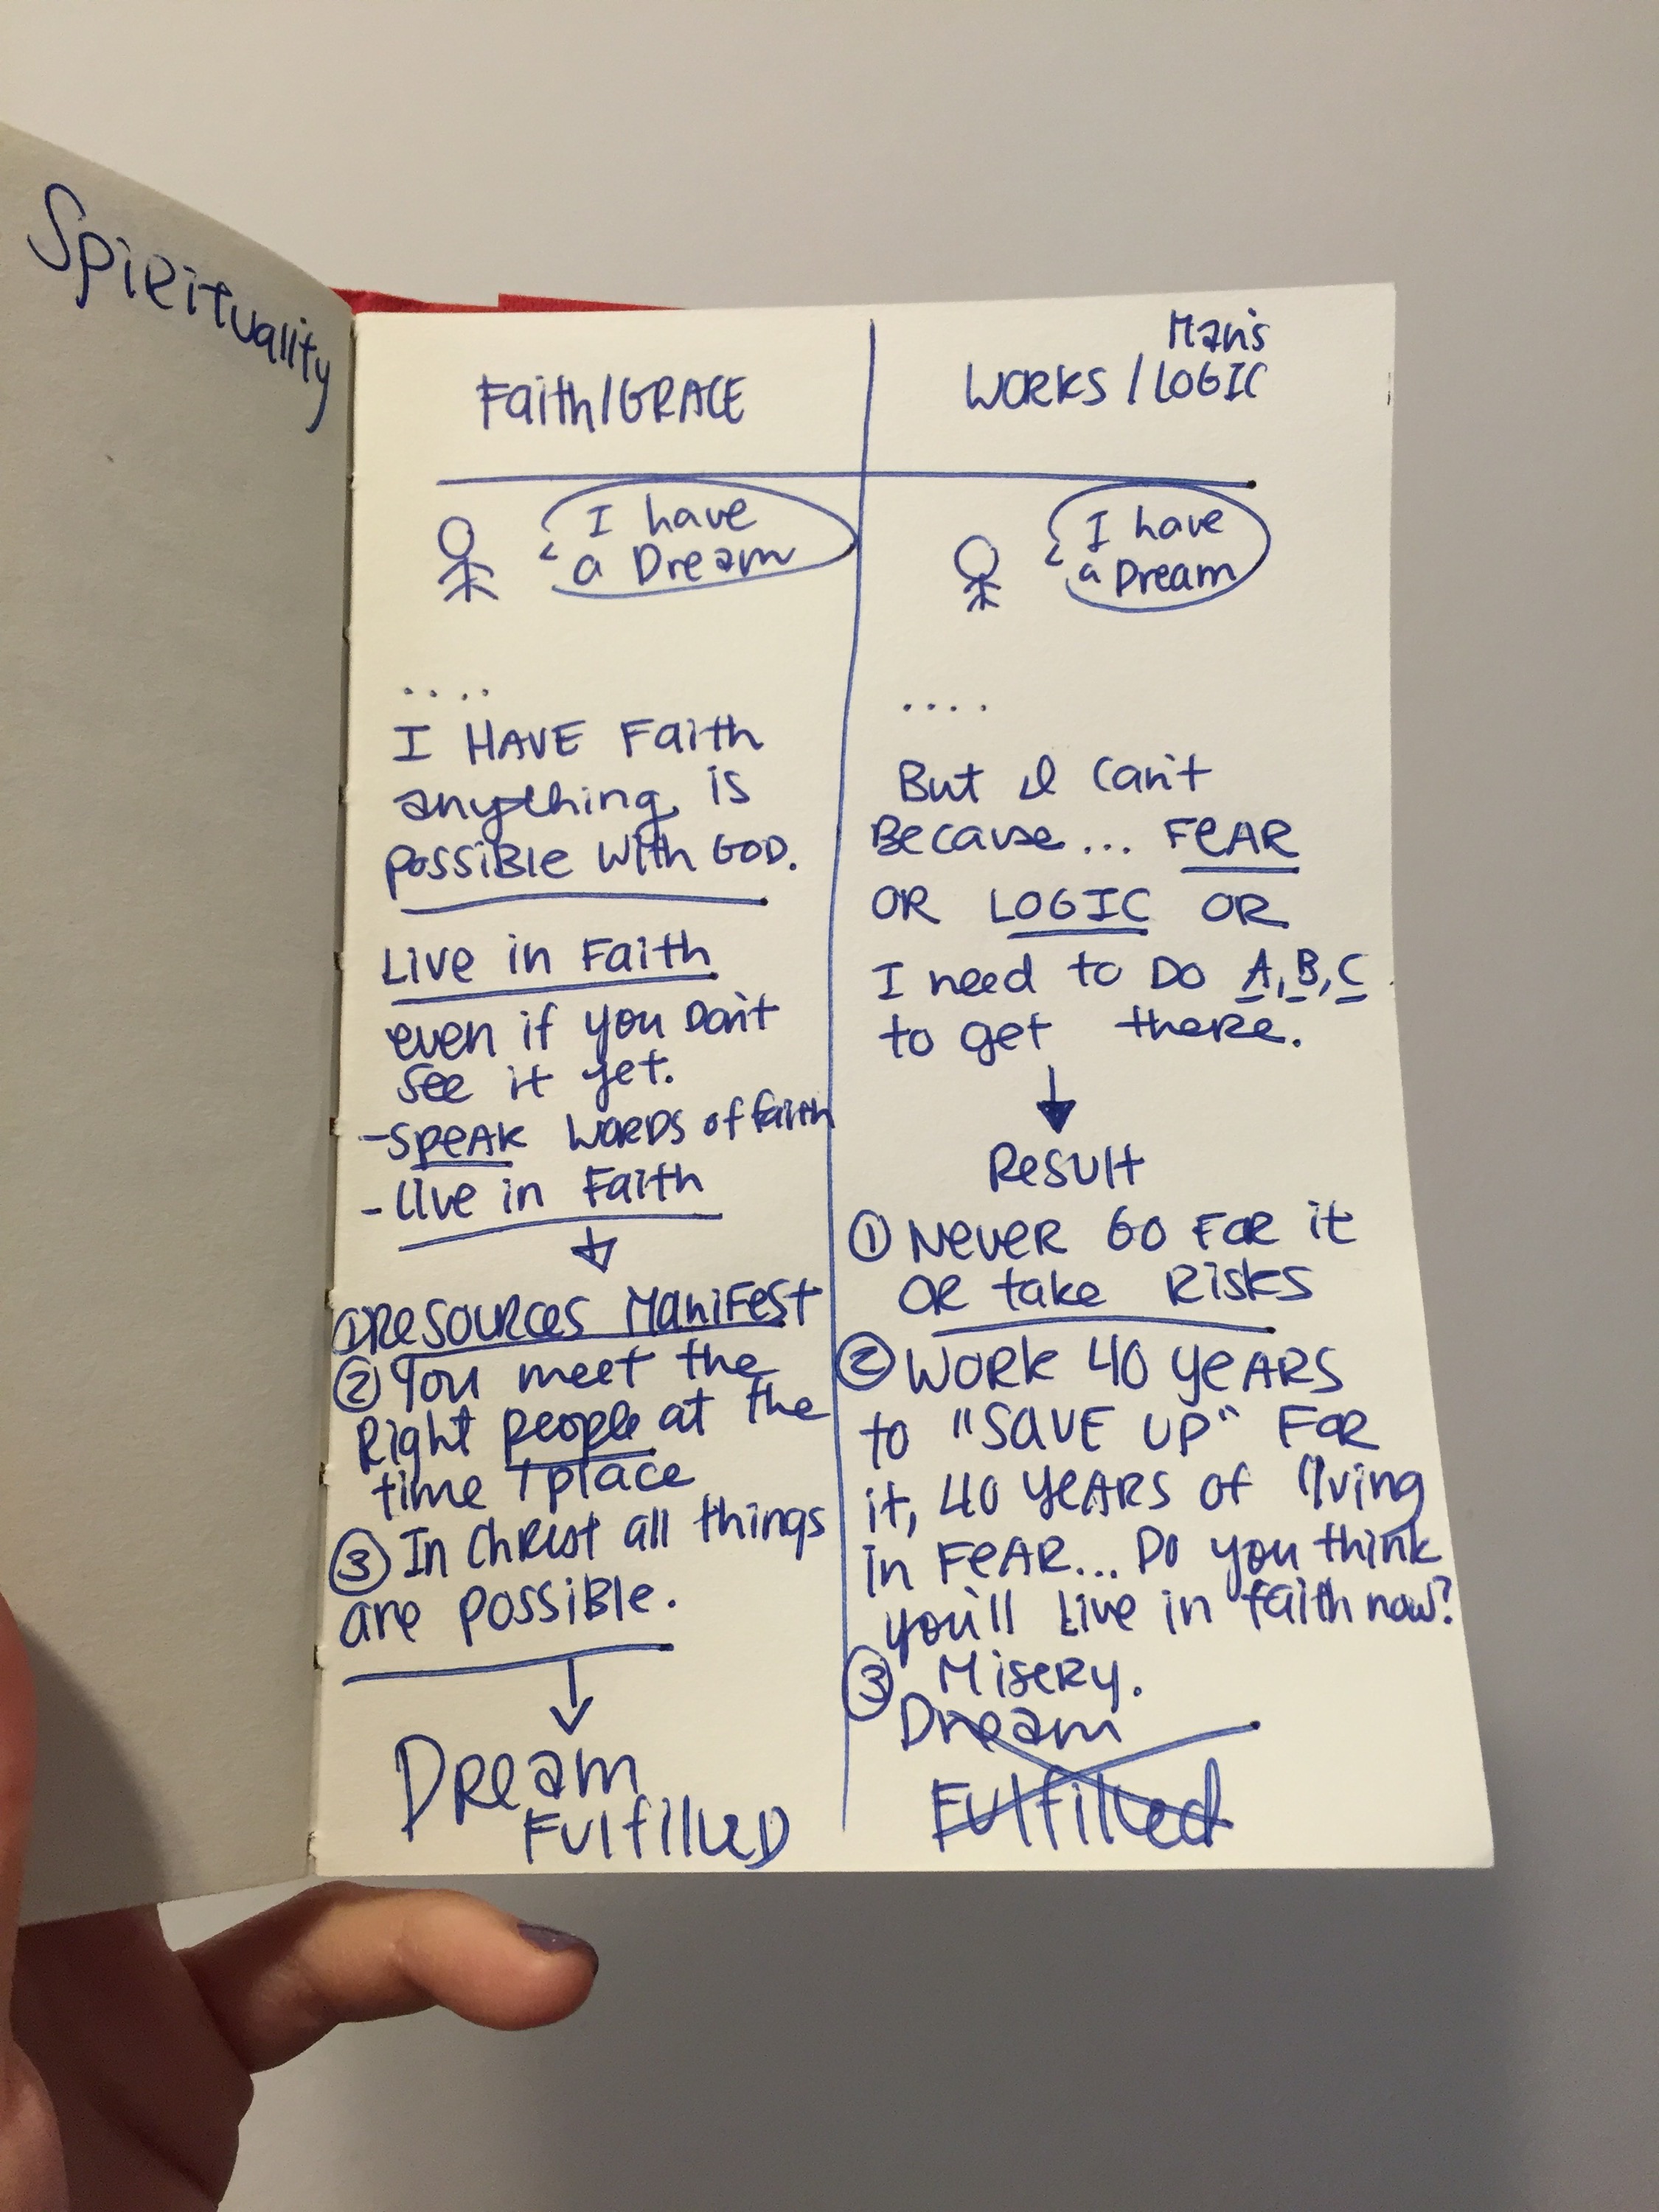 Spirituality
Faith/GRACE
I have
a Dream
....
I HAVE Faith
anything is
possible with GOD.
Live in Faith
even if you Don't
see it yet.
-speak words of faith
-live in Faith
①Resources Manifest
②You meet the
Right people at the
time / place
③ In Christ all things
are possible.
Dream
Fulfilled
Man's
WORKS / LOGIC
I have
a Dream
....
But I can't
Because... FeAR
OR LOGIC OR
I need to Do A, B, C
to get there.
Result
① Never Go For it
OR take Risks
② Work 40 years
to "save up" For
it, 40 years of living
in FeAR... Do you think
you'll Live in faith now?
③ Misery.
Dream
Fulfilled